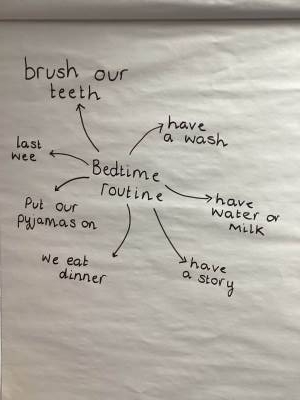 brush our
teeth
have
a wash
last
wee
Bedtime
routine
Put our
pyjamas on
have
water or
milk
we eat
dinner
have
a story